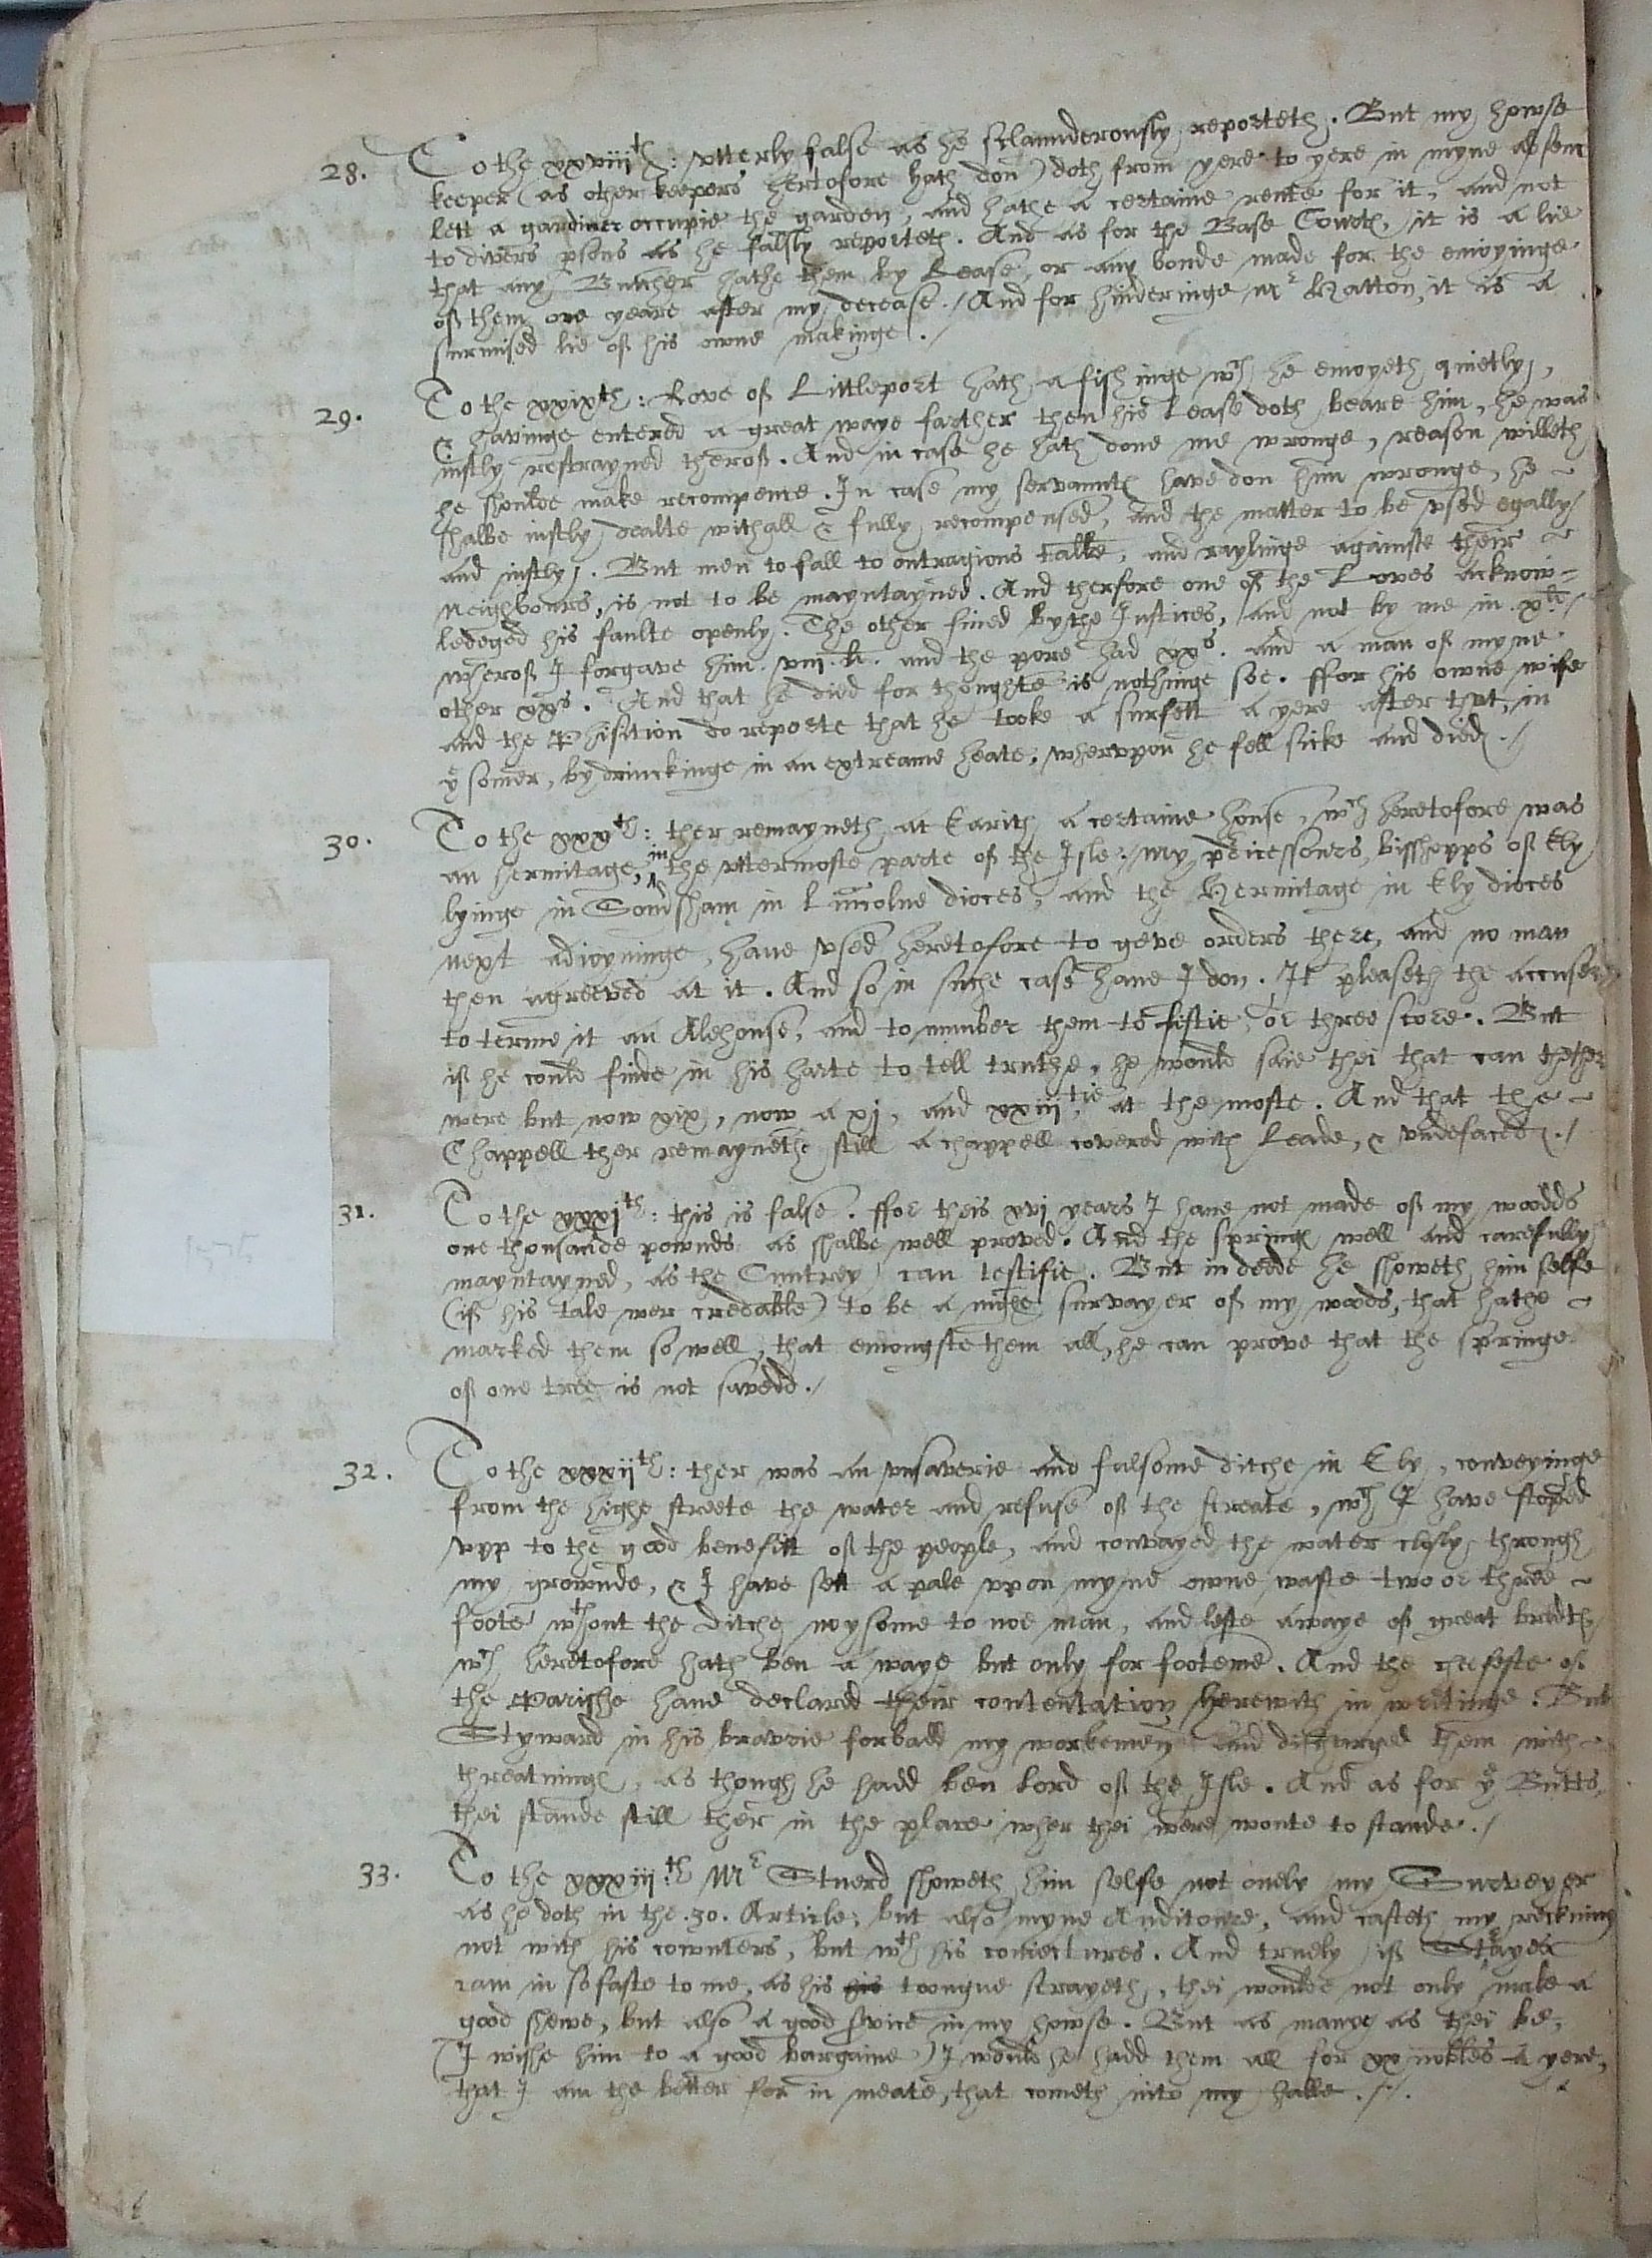 28. To the xxviijth: vtterly false as he sclaunderously reporteth. But my howse
keeper (as other keepers hertofore hath don) doth from yere to yere in myne absenc
lett a gardiner occupie the garden, and hathe a certaine rente for it, and not
to divers psons as he falsly reporteth. And as for the Base Courte, it is a lie
that any Butcher hathe them by Lease, or any bonde made for the enioyinge
of them one yeare after my decease./ And for hinderinge Mr Hatton, it is a
surmised lie of his owne makinge./
29. To the xxixth: Love of Littleport hath a fishinge wch he enioyeth quietly,
& havinge entered a great waye farther then his Lease doth beare him, he was
iustly restrayned therof. And in case he hath done me wronge, reason willeth
he shoulde make recompence. In case my servauntes have don him wronge, he
shalbe iustly dealte withall & fully recompensed, and the matter to be vsed egally
and iustly. But men to fall to outragious talke, and raylinge againste their
neighbours, is not to be mayntayned. And therfore one of the Loves acknow=
ledeged his faulte openly. The other fined by the Justices, and not by me in xli./
wherof I forgave him. viij. li. and the pore had xxs. and a man of myne
other xxs. And that he died for thoughte is nothinge soe. ffor his owne wife
and the Phisition do reporte that he tooke a surfett a yere after that, in
ye somer, by drinckinge in an extreame heate, whervpon he fell sicke and died./
30. To the xxxth: ther remayneth at Earith a certaine house, wch heretofore was
an hermitage, in the vttermoste parte of the Isle./ My predicessours, Bisshopps of Ely
lyinge in Somsham in Lincolne dioces, and the Hermitage in Ely dioces
next adioyninge, haue vsed heretofore to geve orders there, and no man
then agreeved at it. And so in suche case haue I don. It pleaseth the accuser
to terme it an Alehouse, and to number them to fiftie, or three score. But
if he could finde in his harte to tell truthe, he would saie thei that cam thether
were but now xix, now a xj, and xxiiijtie at the moste. And that the
Chappell ther remaynethe still a chappell covered with Leade, & vndefaced./
31. To the xxxjth: this is false. ffor theis xvj years I haue not made of my woodds
one thousande pownds as shalbe well proved. And the springes well and carefully
mayntayned, as the Cuntrey can testifie. But in deede he showeth him selfe
(if his tale wer credable) to be a nighe survayer of my woods, that hathe
marked them so well, that emongste them all, he can prove that the springe
of one tree is not savedd./
32. To the xxxijth: ther was an vnsaverie and fulsome ditche in Ely, conveyinge
from the highe streete the water and refuse of the streate, wch I have stoped
vpp to the good benefitt of the people, and convayed the water closly through
my grownde, & I have sett a pale vpon myne owne waste two or three
foote wthout the ditche noysome to noe man, and lefte a waye of great bredth
wch heretofore hath ben a waye but only for footemen. And the cheefeste of
the Parishe haue declared their contentation herewith in writinge. But
Styward in his braverie forbadd my workemen and discharged them with
threatninges, as though he hadd ben Lord of the Isle. And as for ye Butts,
thei stande still ther in the place wher thei were wonte to stande./
33. To the xxxiijth Mr Stuerd showeth him selfe not onely my Surveyer
as he doth in the .30. Article, but also myne Auditoure, and casteth my reckning
not with his cownters, but wth his coniectures. And truely if Strayers
cam in so faste to me, as his his toongue strayeth, thei woulde not only make a
good shewe, but also a good service in my howse. But as many as thei be,
(I wishe him to a good bargaine) I would he hadd them all for xx nobles a yere,
that I am the better for in meate, that cometh into my halle./.